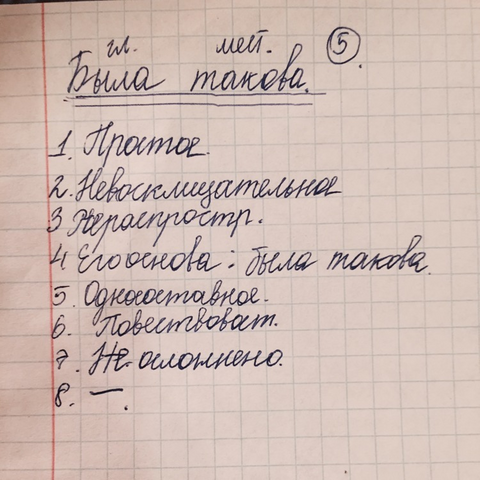 гл. мест. 5
Была такова.
1. Простое.
2. Невосклицательное
3 Нераспростр.
4 Его основа: была такова.
5. Односоставное.
6. Повествоват.
7. Не осложнено.
8. —.